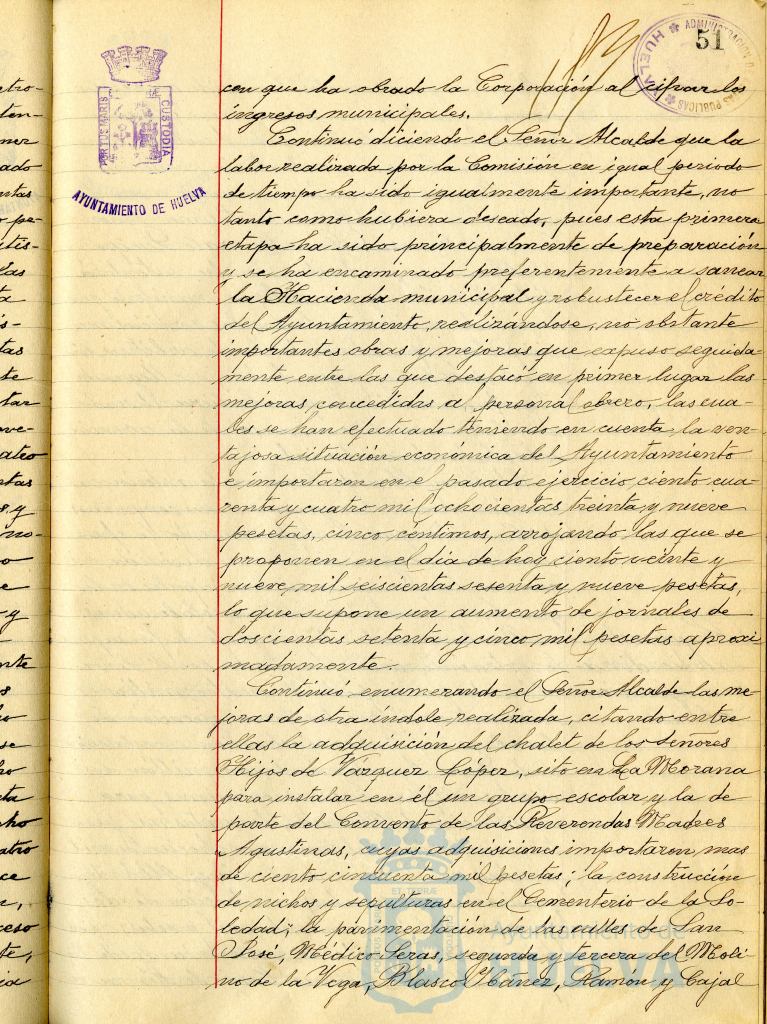 51
ADMINISTRACION D
AS PUBLICAS
HUELVA
PORTUS MARIS
CUSTODIA
AYUNTAMIENTO DE HUELVA
con que ha obrado la Corporación al cifrar los
ingresos municipales.
Continuó diciendo el Señor Alcalde que la
labor realizada por la Comisión en igual periodo
de tiempo ha sido igualmente importante, no
tanto como hubiera deseado, pues esta primera
etapa ha sido principalmente de preparación
y se ha encaminado preferentemente a sanear
la Hacienda municipal y robustecer el crédito
del Ayuntamiento, realizándose, no obstante
importantes obras y mejoras que expuso seguida-
mente entre las que destacó en primer lugar las
mejoras concedidas al personal obrero, las cua-
les se han efectuado teniendo en cuenta la ven-
tajosa situación económica del Ayuntamiento
e importaron en el pasado ejercicio ciento cua-
renta y cuatro mil ochocientas treinta y nueve
pesetas, cinco céntimos, arrojando las que se
proponen en el día de hoy ciento veinte y
nueve mil seiscientas sesenta y nueve pesetas,
lo que supone un aumento de jornales de
doscientas setenta y cinco mil pesetas aproxi
madamente.
Continuó enumerando el Señor Alcalde las me
joras de otra índole realizada, citando entre
ellas la adquisición del chalet de los Señores
Hijos de Vázquez López, sito en La Morana
para instalar en él un grupo escolar y la de
parte del Convento de las Reverendas Madres
Agustinas, cuyas adquisiciones importaron mas
de ciento cincuenta mil pesetas; la construcción
de nichos y sepulturas en el Cementerio de la So-
ledad; la pavimentación de las calles de San
José, Médico Seras, segunda y tercera del Moli-
no de la Vega, Blasco Ibáñez, Ramón y Cajal
Ayuntamiento de
HUELVA